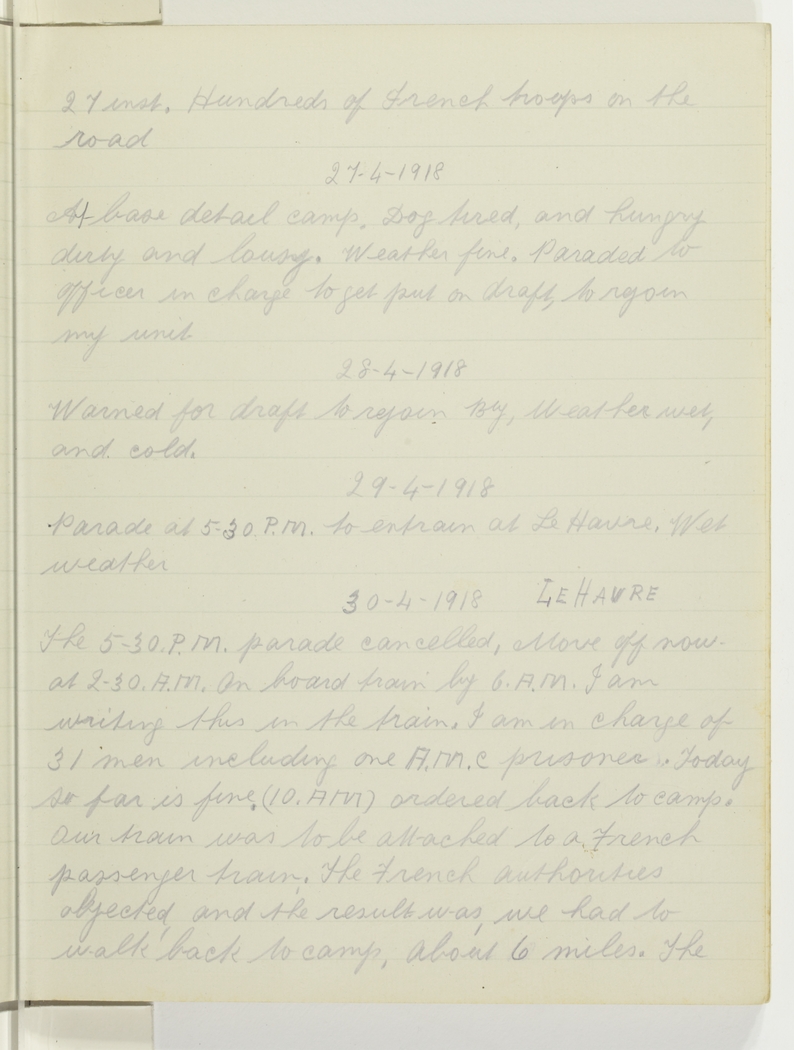 27 inst. Hundreds of French troops on the
road
27-4-1918
At base detail camp. Dog tired, and hungry
dirty and lousy. Weather fine. Paraded to
officer in charge to get put on draft, to rejoin
my unit
28-4-1918
Warned for draft to rejoin Bty, Weather wet,
and cold.
29-4-1918
Parade at 5-30 P.M. to entrain at Le Havre. Wet
weather
30-4-1918 LE HAVRE
The 5-30.P.M. parade cancelled, Move off now
at 2-30.A.M. On board train by 6.A.M. I am
writing this in the train. I am in charge of
31 men including one A.M.C prisoner. Today
so far is fine. (10.AM) ordered back to camp.
Our train was to be attached to a French
passenger train. The French authorities
objected, and the result was, we had to
walk back to camp, about 6 miles. The